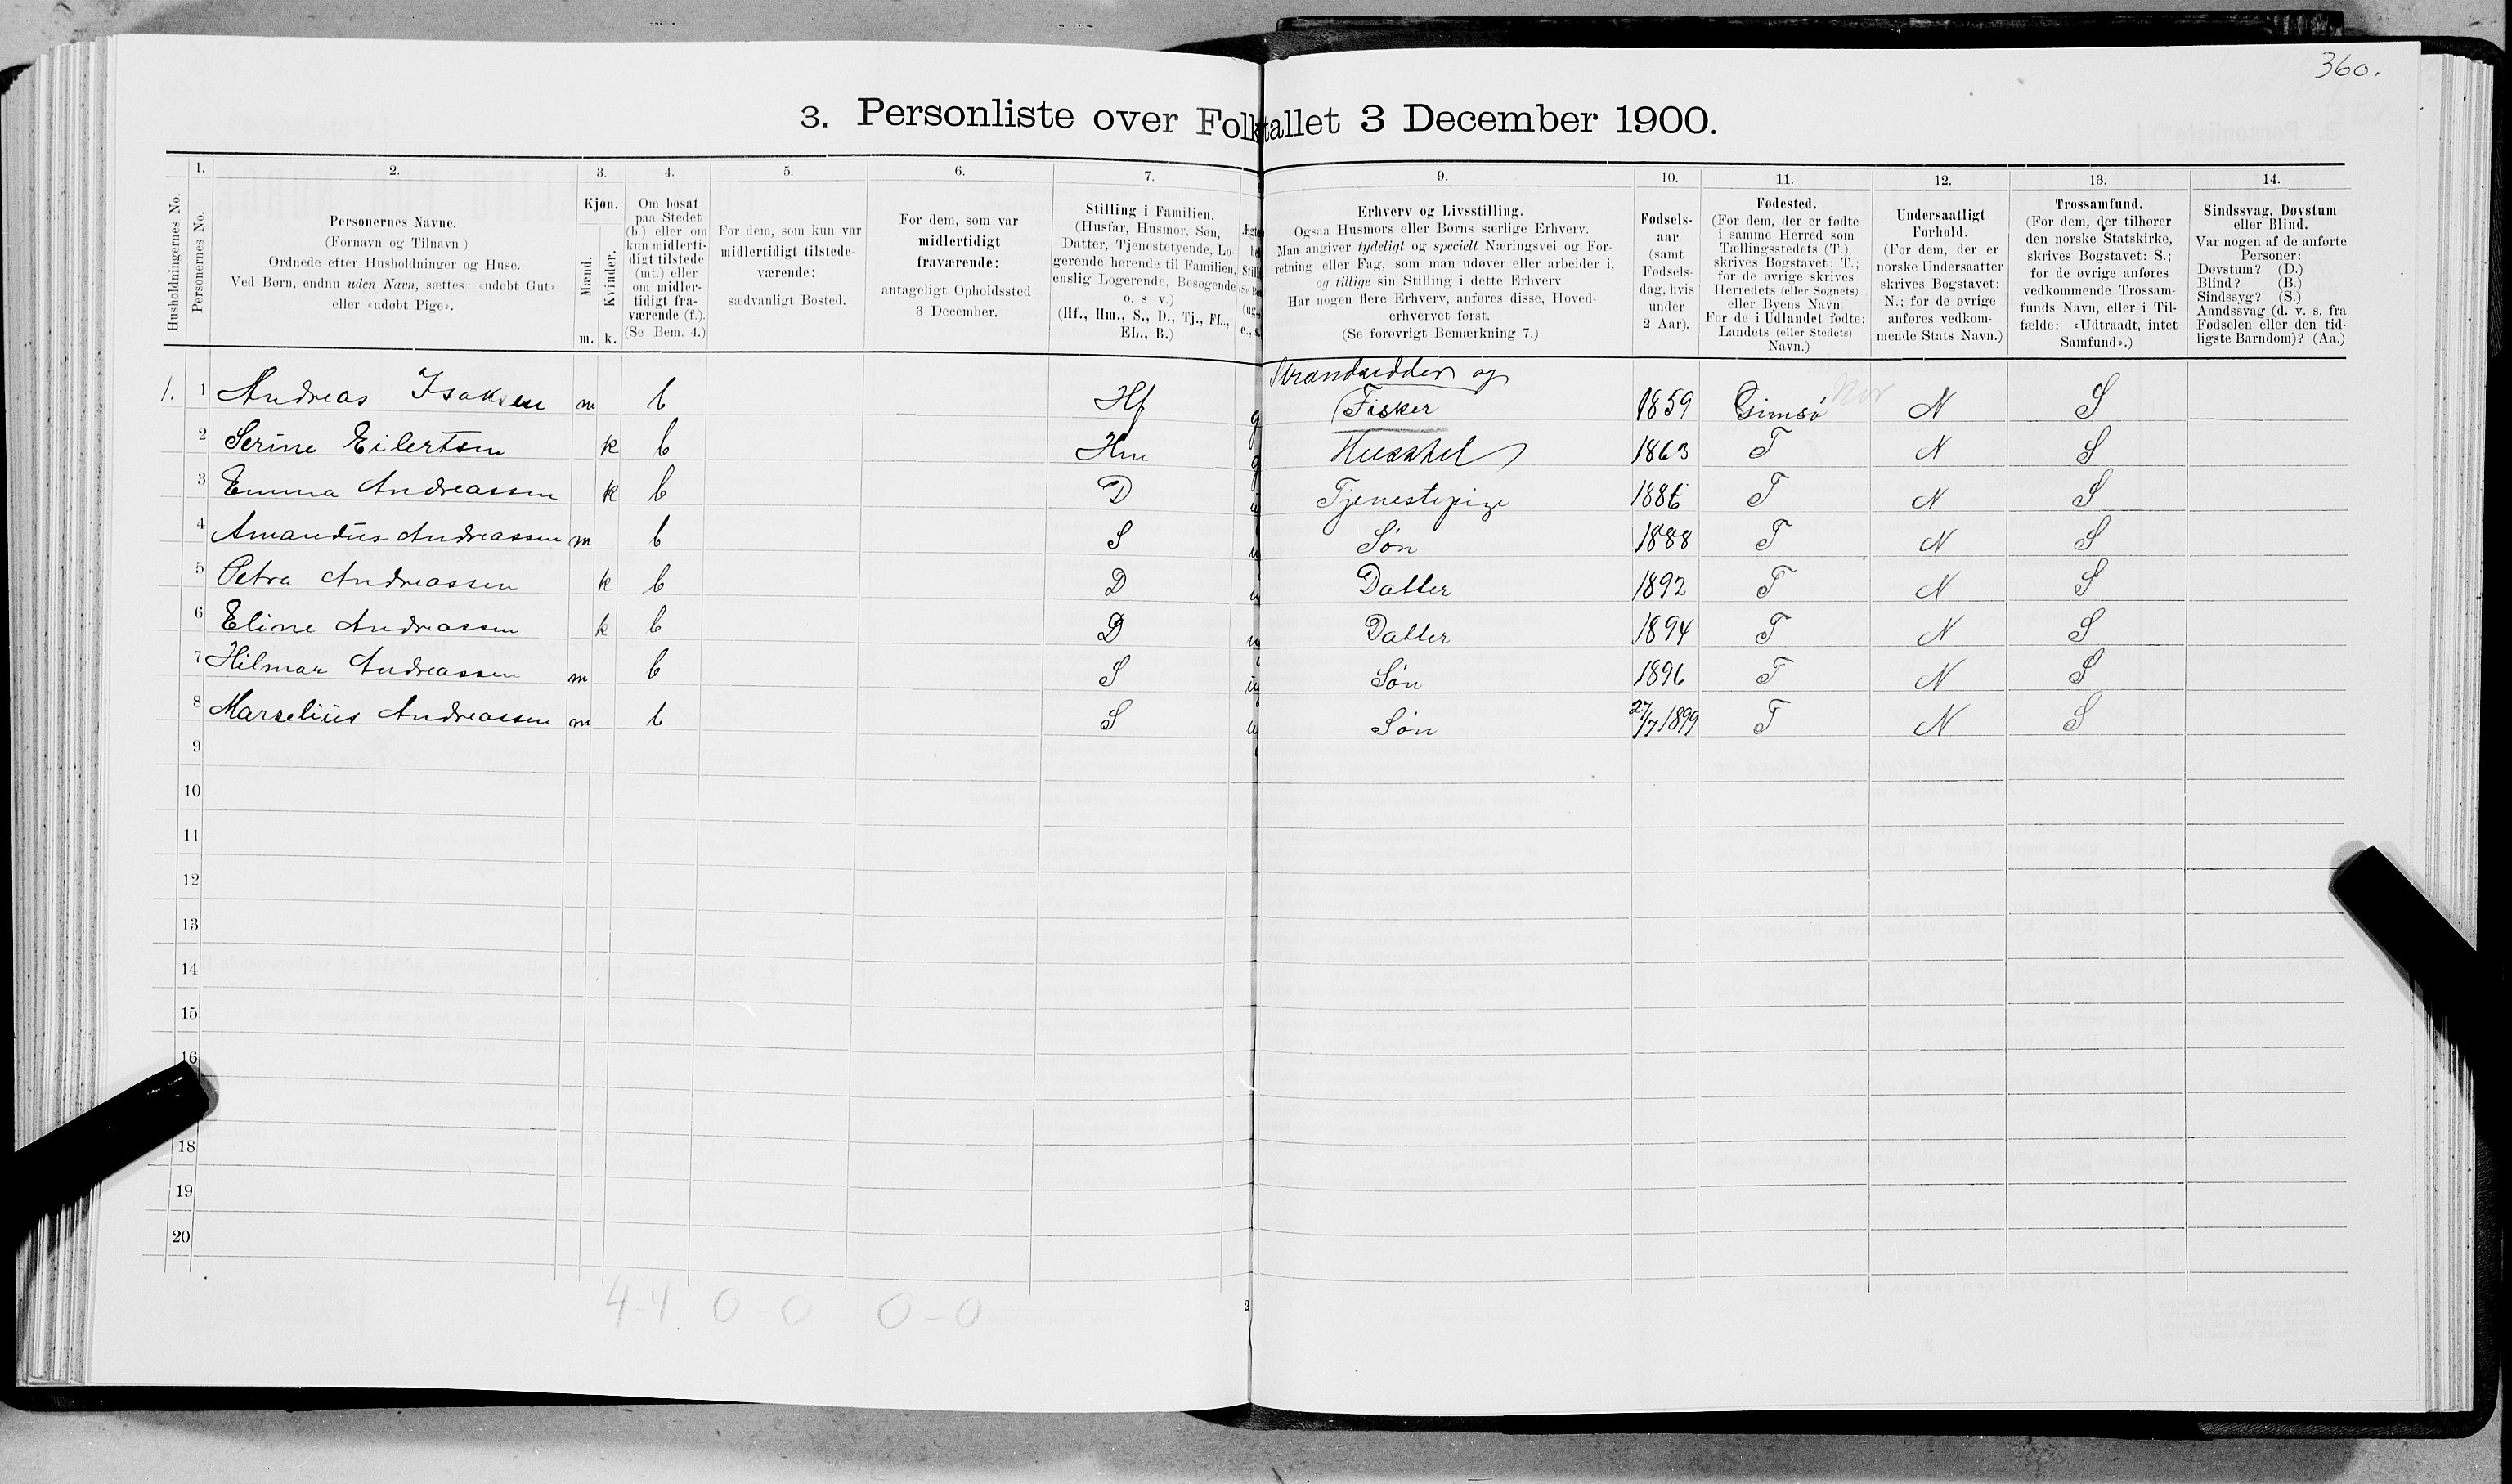 360.
3. Personliste over Folketallet 3 December 1900.
Husholdningernes No.
1. 2. 3. 4. 5. 6. 7. 9. 10. 11. 12. 13. 14.
Personernes No.
Personernes Navne.
(Fornavn og Tilnavn)
Ordnede efter Husholdninger og Huse.
Ved Børn, endnu uden Navn, sættes: «udøbt Gut»
eller «udøbt Pige».
Kjøn.
Mænd.
Kvinder.
m. k.
Om bosat
paa Stedet
(b.) eller om
kun midlerti-
digt tilstede
(mt.) eller
om midler-
tidigt fra-
værende (f.).
(Se Bem. 4.)
For dem, som kun var
midlertidigt tilstede-
værende:
sædvanligt Bosted.
For dem, som var
midlertidigt
fraværende:
antageligt Opholdssted
3 December.
Stilling i Familien.
(Husfar, Husmor, Søn,
Datter, Tjenestetyende, Lo-
gerende hørende til Familien,
enslig Logerende, Besøgende
o. s v.)
(Hf., Hm., S., D., Tj., FL.,
EL., B.)
Erhverv og Livsstilling.
Ogsaa Husmors eller Børns særlige Erhverv.
Man angiver tydeligt og specielt Næringsvei og For-
retning eller Fag, som man udøver eller arbeider i,
og tillige sin Stilling i dette Erhverv.
Har nogen flere Erhverv, anføres disse, Hoved-
erhvervet først.
(Se forøvrigt Bemærkning 7.)
Fødsels-
aar
(samt
Fødsels-
dag, hvis
under
2 Aar).
Fødested.
(For dem, der er fødte
i samme Herred som
Tællingsstedets (T.),
skrives Bogstavet: T.;
for de øvrige skrives
Herredets (eller Sognets)
eller Byens Navn
For de i Udlandet fødte:
Landets (eller Stedets)
Navn.)
Undersaatligt
Forhold.
(For dem, der er
norske Undersaatter
skrives Bogstavet:
N.; for de øvrige
anføres vedkom-
mende Stats Navn.)
Trossamfund.
(For dem, der tilhører
den norske Statskirke,
skrives Bogstavet: S.;
for de øvrige anføres
vedkommende Trossam-
funds Navn, eller i Til-
fælde: «Udtraadt, intet
Samfund».)
Sindssvag, Døvstum
eller Blind.
Var nogen af de anførte
Personer:
Døvstum? (D.)
Blind? (B.)
Sindssyg? (S.)
Aandssvag (d. v. s. fra
Fødselen eller den tid-
ligste Barndom)? (Aa.)
Strandsidder og
1. 1 Andreas Isaksen m b Hf g Fisker 1859 Gimsø N S
2 Serine Eilertsen k b Hm g Husstel 1863 T N S
3 Emma Andreassen k b D Tjenestepige 1886 T N S
4 Amandus Andreassen m b S Søn 1888 T N S
5 Petra Andreassen k b D Datter 1892 T N S
6 Eline Andreassen k b D Datter 1894 T N S
7 Hilmar Andreassen m b S Søn 1896 T N S
8 Marselius Andreassen m b S Søn 27/7 1899 T N S
9
10
11
12
13
14
15
16
18
19
20
4-4 0-0 0-0
2